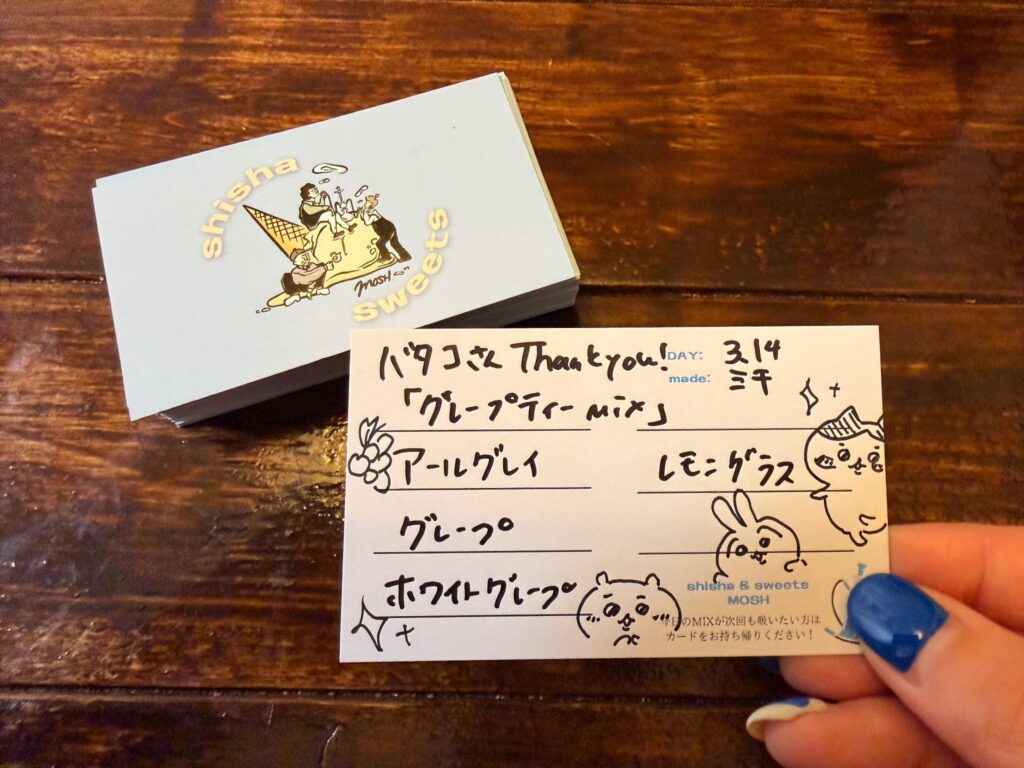 shisha
sweets
MOSH
バタコさん Thank you! DAY: 3.14
made: ミチ
「グレープティー mix」
アールグレイ レモングラス
グレープ
ホワイトグレープ
shisha & sweets
MOSH
今日のMIXが次回も吸いたい方は
カードをお持ち帰りください！